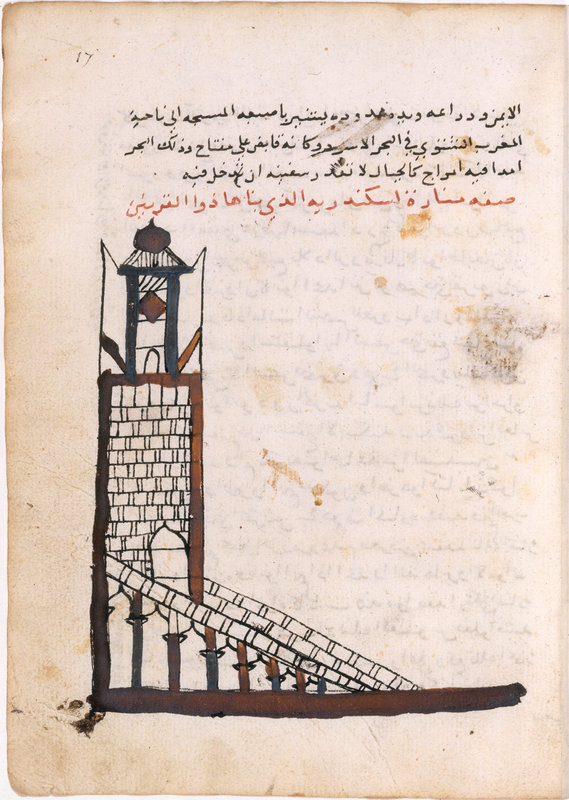 ١٧
الايمن ودراعه ويده ممدوده يشير باصبعه المسبحه الى ناحية
المغرب في البحر الاسود وكانه قابض على مفتاح وذلك البحر
فيه امواج كالجبال لا تقدر سفينه ان تدخل فيه
صفه منارة اسكندريه الذي بناها ذوا القرنين